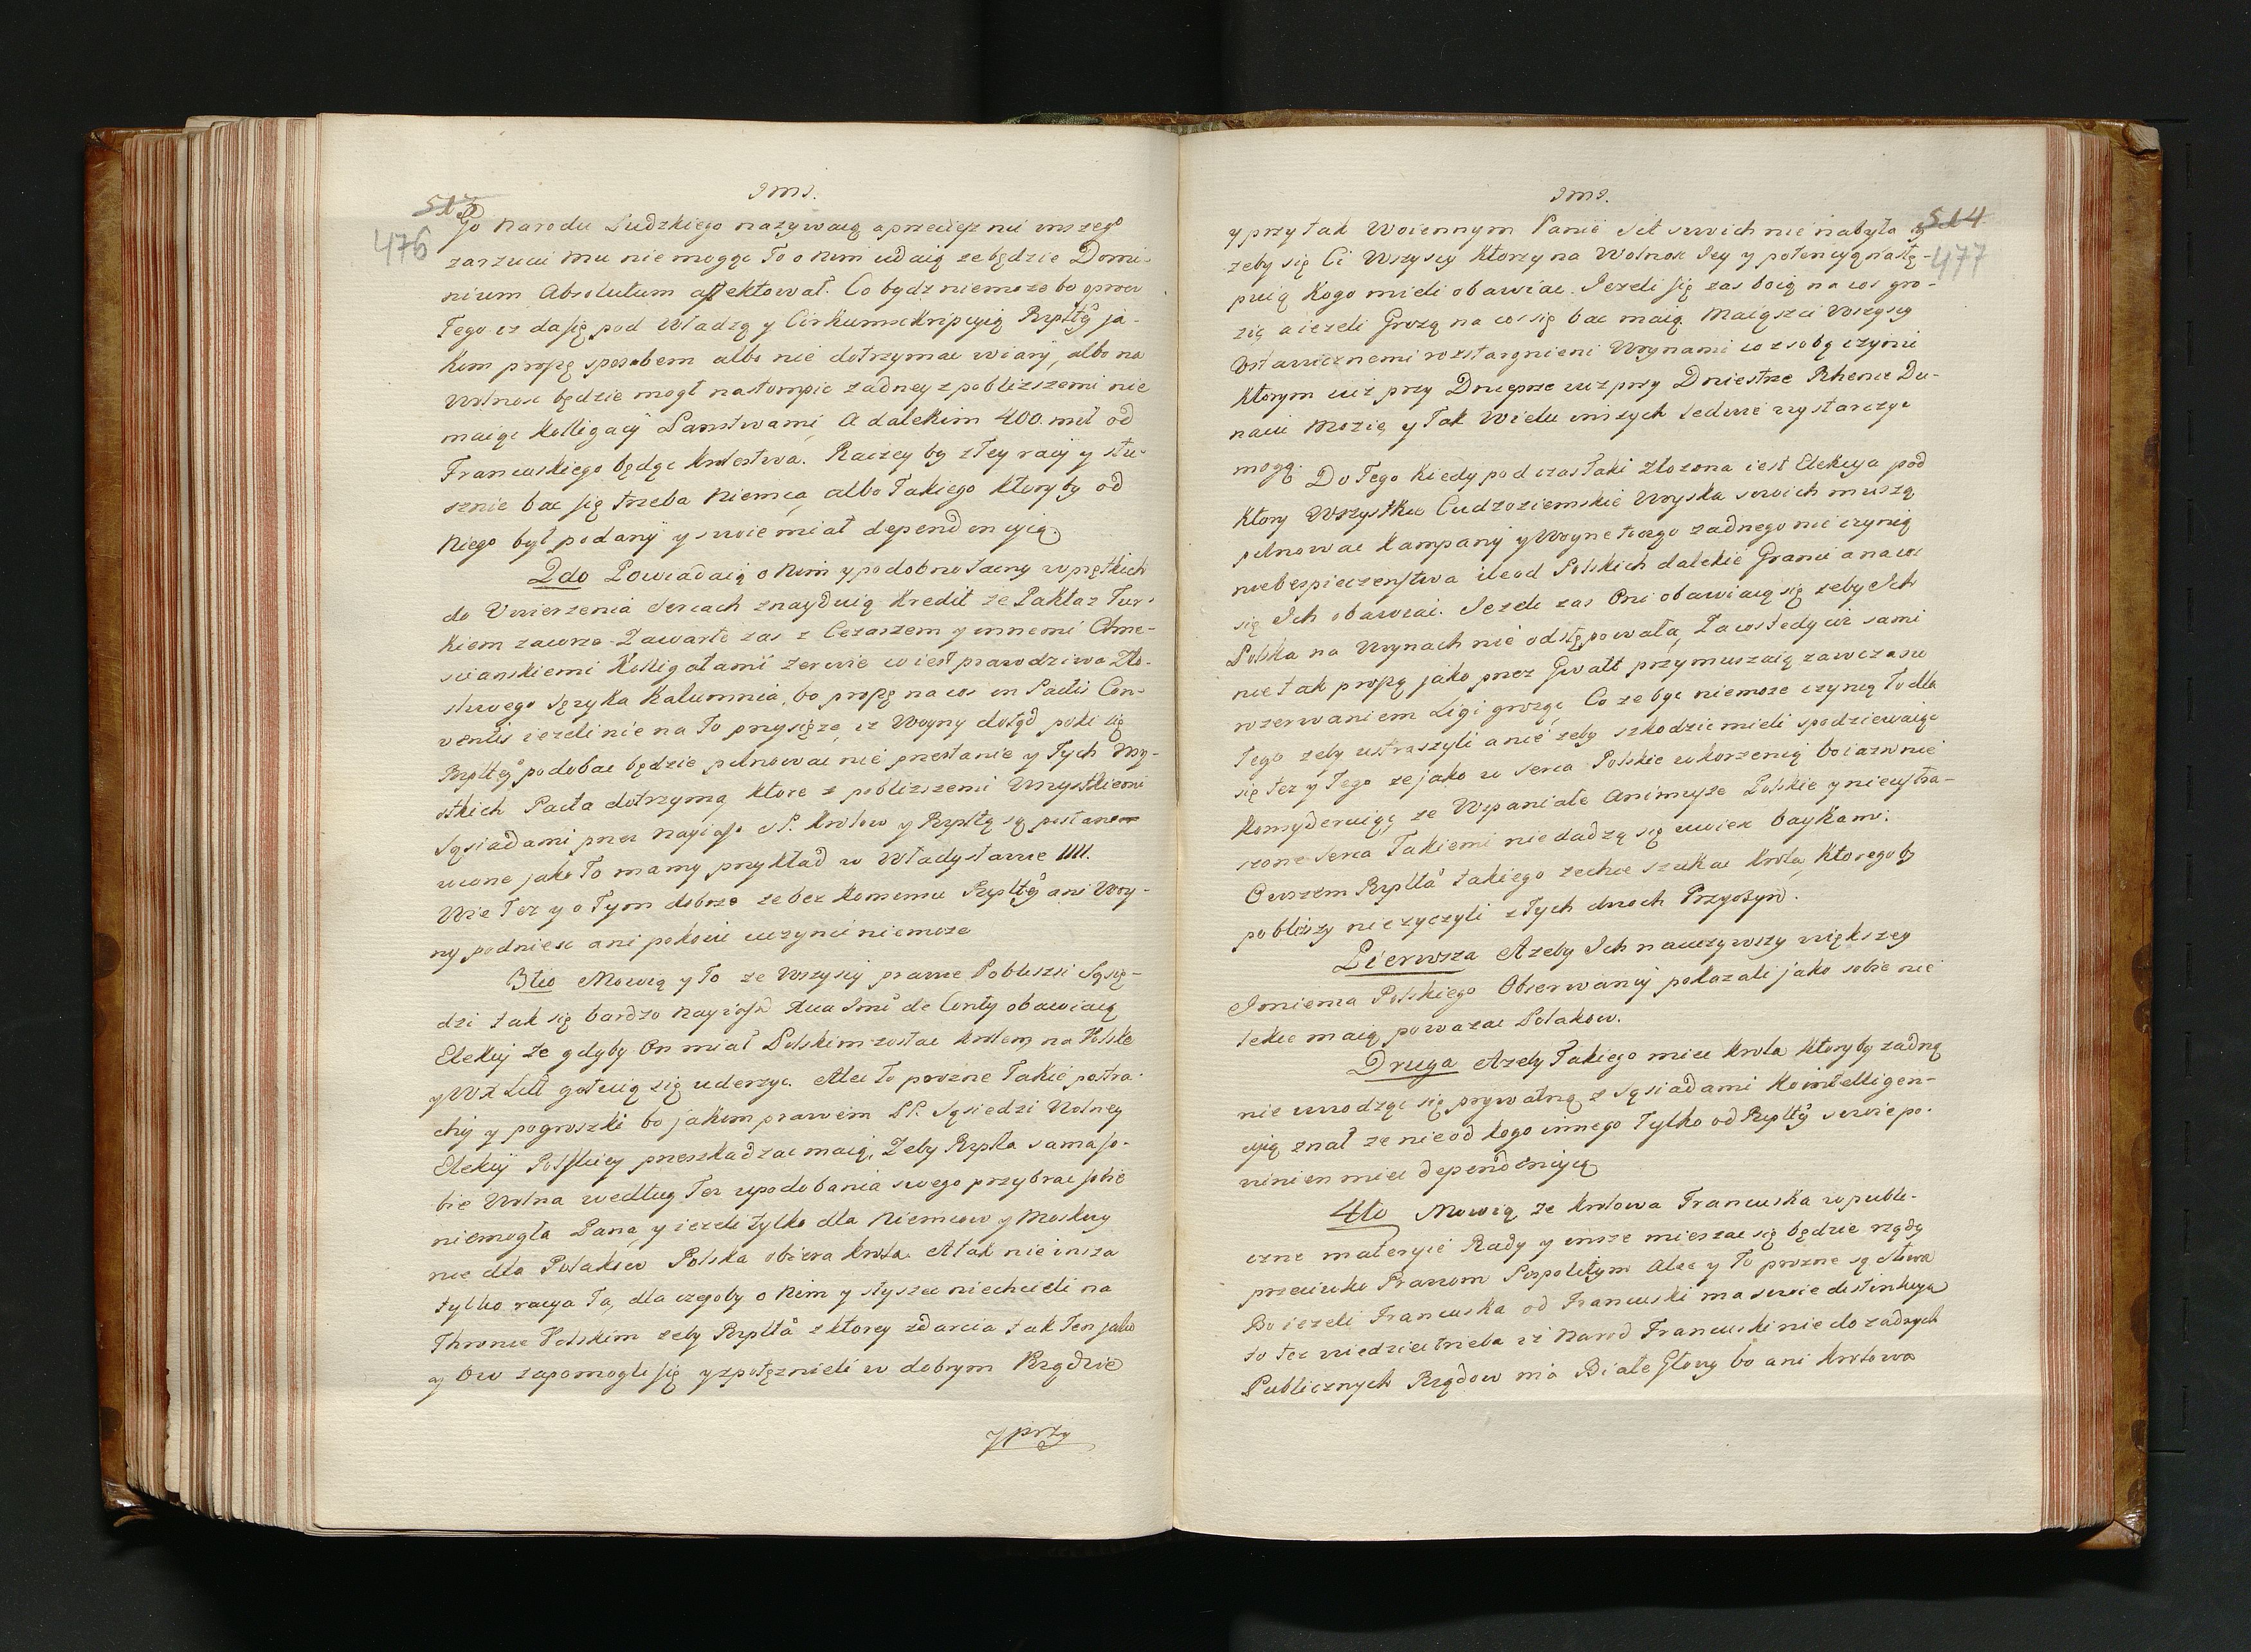 IMI.
513
476
go Narodu Ludzkiego nazywaią a przecięż nic inszego
zarzucic mu nie mogąc To o Nim udaią ze będzie Domi-
nium Absolutum affektował. Co bydz niemoze bo oprocz
Tego iz da się pod Władzą y Cirkumskripcyią Rpltey ja-
kim proszę sposobem albo nie dotrzymac wiary, albo na
Wolnosc będzie mogł nastompic zadney z poblizszemi nie
maiąc kolligacÿ Panstwami, A dalekim 400. mil od
Francuskiego będąc krolestwa. Raczey by z tey racÿ y słu-
sznie bac się trzeba Niemca, albo Takiego ktoryby od
Niego był podanÿ y swoie miał dependencyią.
2do Powiadaią o Nim y podobno tacny w prętkich
do Uwierzenia Sercach znayduią Kredit ze Pakta z Tur-
kiem zawrze Zawarte zas z Cezarzem y innemi Chrze-
scianskiemi Kolligatami zerwie co iest prawdziwa Zło-
sliwego Języka Kalumnia, bo proszę na cos in Pactis Con-
ventis iezeli nie na To przysięze, iz Woyny dotąd poki się
Rpltey podobac będzie pilnowac nie przestanie y Tych Wszy-
stkich Pacta dotrzyma, ktore z poblizszemi Wszystkiemi
Sąsiadami przez Nayias. S.P. Krolow y Rpltą są postano-
wione jako To mamy przykład w Władysławie IIII.
Wie Tez y o Tym dobrze ze bez konsensu Rpltey ani Woy-
ny podniesc ani pokoiu uczynic niemoze
3tio Mowią y To ze Wszyscy prawie Pobliszsi Sąsie-
dzi tak się bardzo Nayiasn Xcia Imci de Conty obawiaią
Elekcÿ ze gdyby On miał Polskim zostac krolem, na Polskę
y WX Litt gotuią się uderzyc. Ale to prozne Takie postra-
chy y pogroszki bo jakim prawem PP. Sąsiedzi Wolney
Elekcÿ Polskiey przeszkadzac maią, Zeby Rplta sama so-
bie Wolna według Tez upodobania swego przybrac sobie
niemogła Pana, y iezeli tylko dla Niemcow y Moskwy
nie dla Polakow Polska obiera krola. A tak nie insza
tylko racya Ta, dla czegoby o Nim y słyszec niechcieli na
Thronie Polskim zeby Rplta z ktorey zdarcia tak Ten jako
y Ow zapomogli się y zpotęznieli w dobrym Rządzie
y przy
IMI.
514
477
y przy tak Woiennym Panie Sił swoich nie nabyła y
zeby się Ci Wszyscy ktorzy na Wolnosc Jey y potencyą nastę-
puią Kogo mieli obawiac. Jezeli się zas boią na cos gro-
zic a iezeli Grozą na cos się bac maią. Maiąsz ci Wszyscy
Ustawicznemi roztargnieni Woynami co z sobą czynic
Ktorym iuz przy Dnieprze iuz przy Dniestrze Rhenie Du-
naiu Mozie, y Tak Wielu inszych ledwie wystarczyc
mogą.
Do Tego kiedy pod czas Taki złozona iest Elekcya pod
ktory Wszystkie Cudzoziemskie Woyska swoich muszą
pilnowac Kampany y Woyne toczyc zadnego nie czynią
niebespieczenstwa ile od Polskich dalekie Granic a na cos
się Ich obawiac. Jezeli zas Oni obawiaią się zeby Ich
Polska na Woynach nie odstępowała, Za cos tedy iuz sami
nie tak proszą jako przez Gwałt przymuszaią zawczasu
rozerwaniem Ligi grożąc, Co ze byc niemoze czynią to dla
Tego zeby ustraszyli a nie zeby szkodzic mieli spodziewaiąc
się tez y Tego ze jako w Serca Polskie wkorzenią boiazn nie
Konsyderuiąc, ze Wspaniałe Animusze Polskie y nieustra-
szone Serca Takiemi nie dadzą się uwiesc baykami.
Owszem Rplta takiego zechce szukac krola, Ktoregoby
pobliszsi nie zyczyli z Tych dwoch Przyczyn.
Pierwsza Azeby Ich nauczywszy większey
Imienia Polskiego Obserwancÿ pokazali jako sobie nie
lekce maią powazac Polakow.
Druga Azeby Takiego miec krola ktoryby zadną
nie uwodząc się prywatną z Sąsiadami Kointelligen-
cyią znał ze nie od kogo innego Tylko od Rpltey swoie po-
winien miec dependencyią
4to Mowią ze krolowa Francuska w publi-
czne materyie Rady y insze mieszac się będzie rządy
przeciwko Prawom Pospolitym Ale y To prozne są słowa
Bo iezeli Francuska od Francuski ma swoie distinkcya
to tez wiedziec trzeba iz Narod Francuski nie do zadnych
Publicznych Rządow ma Białe Głowy bo ani krolowa